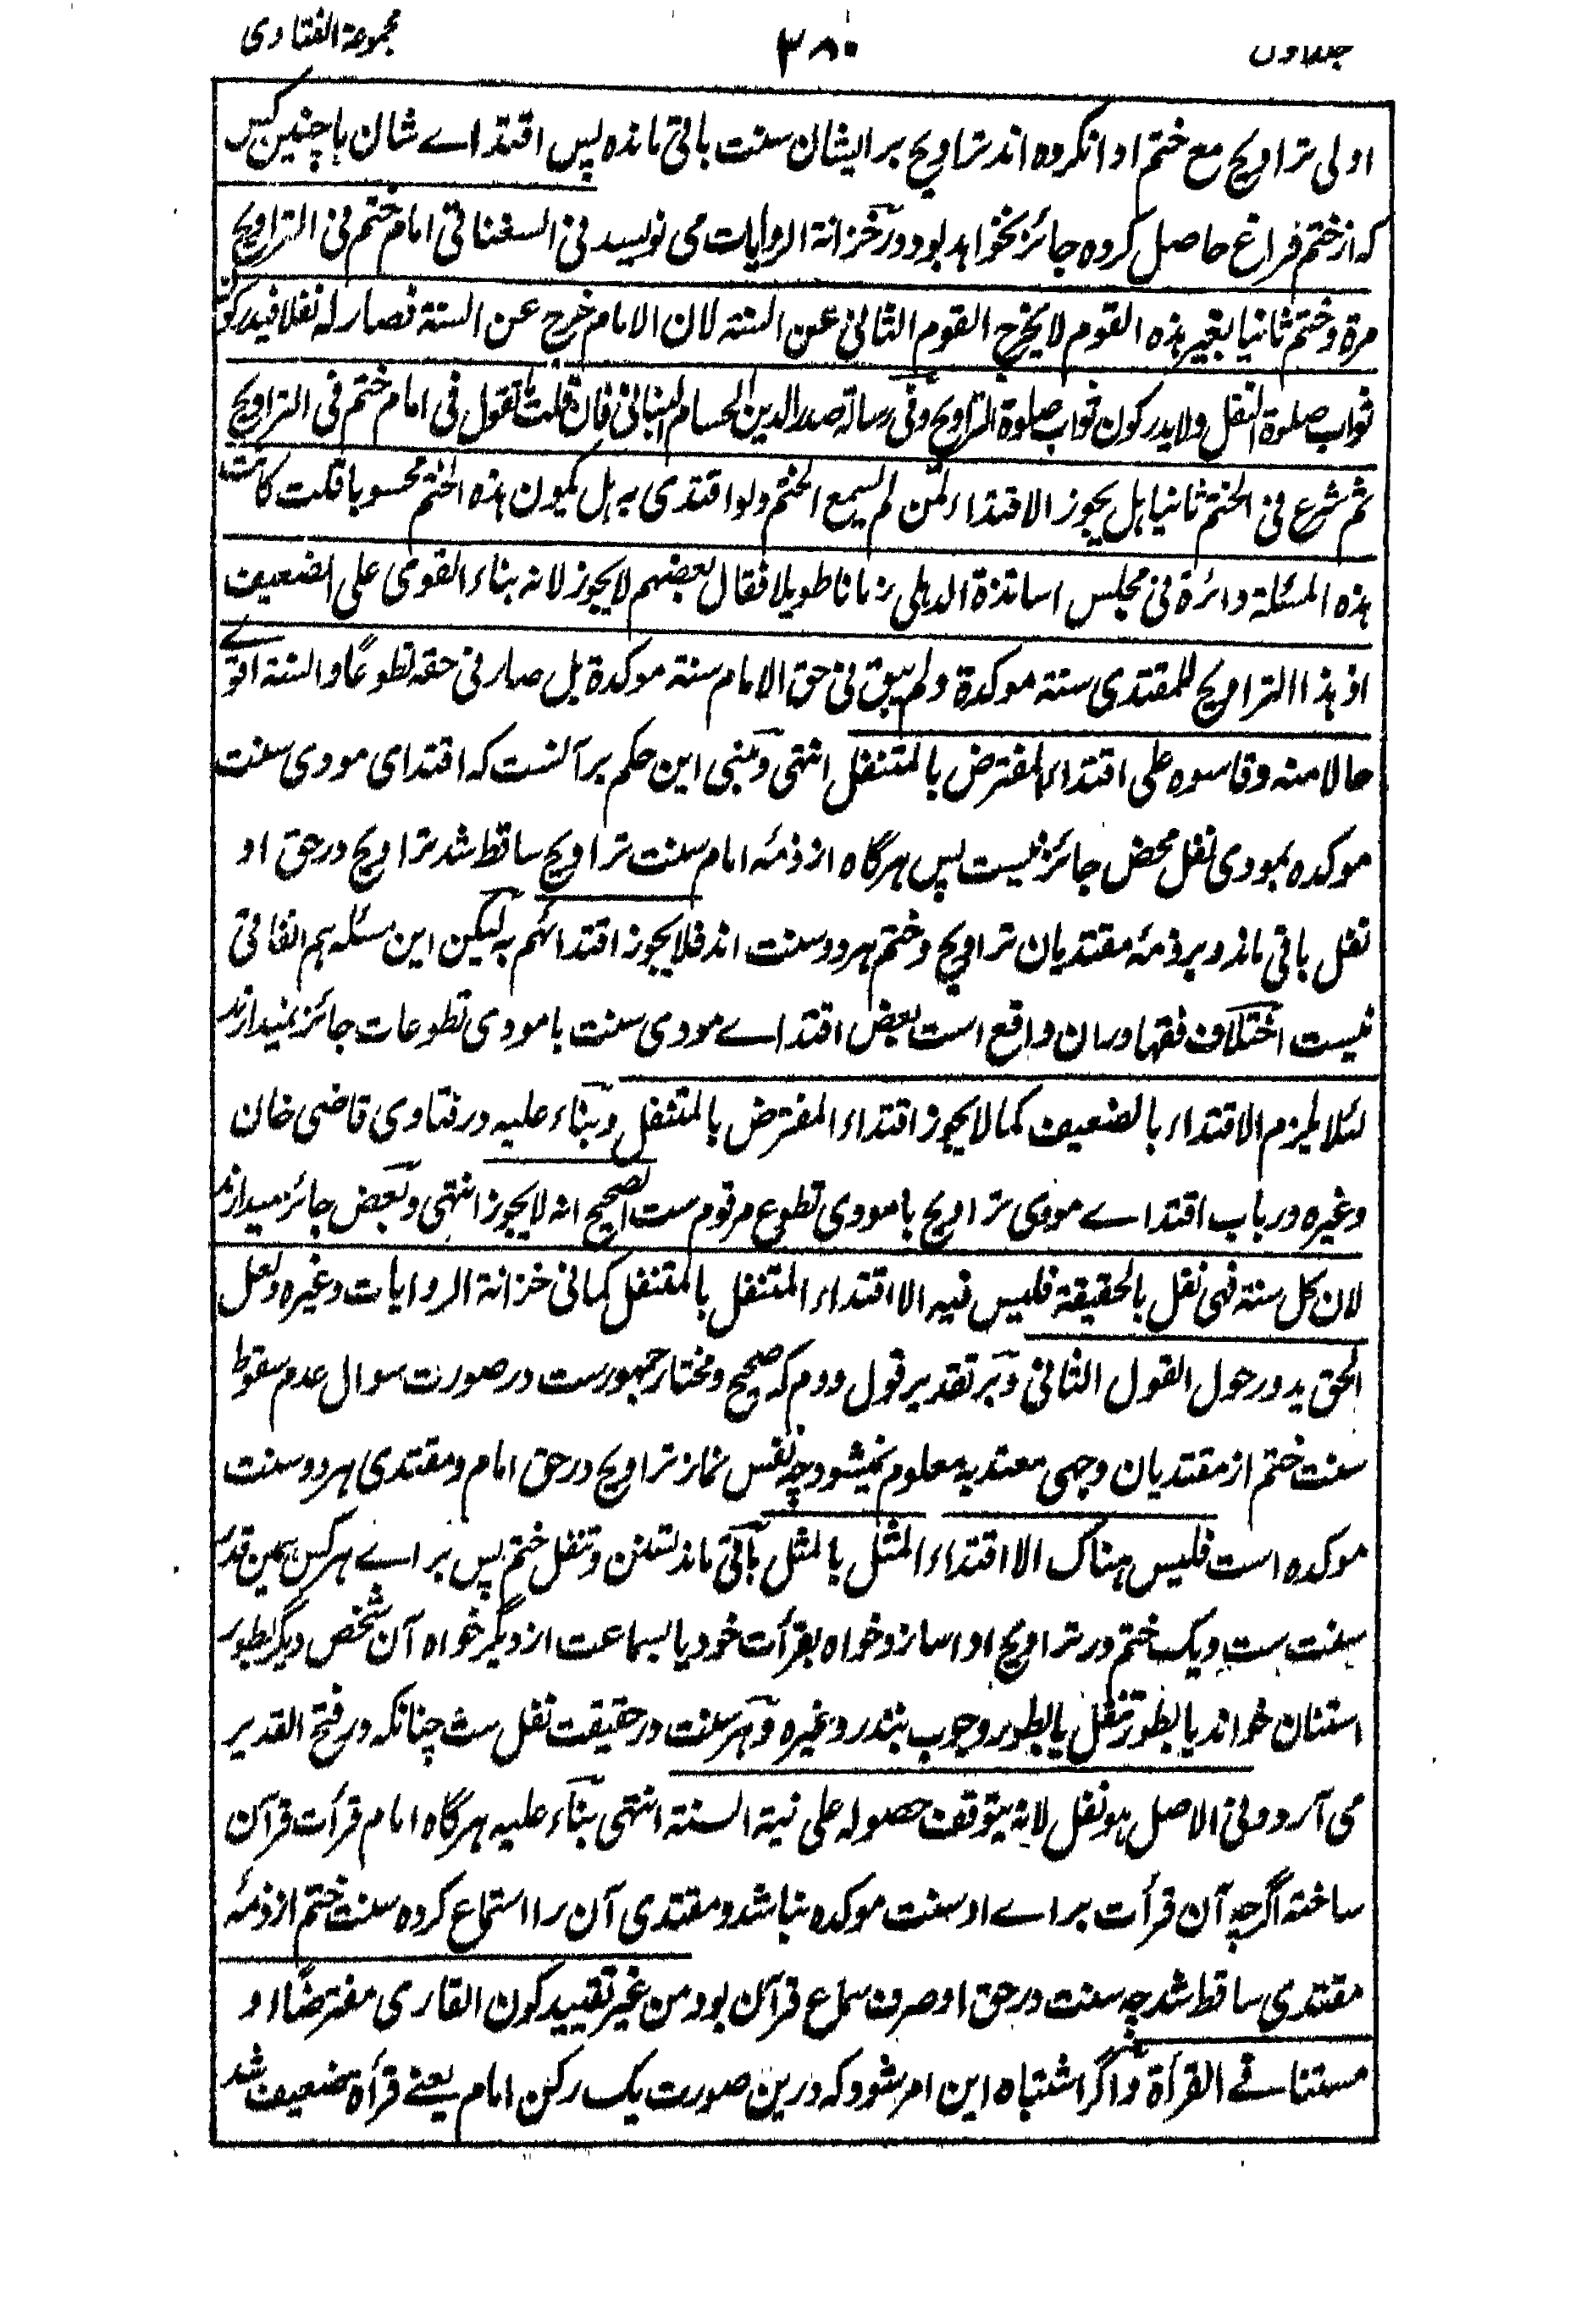 جلد اول ۳۸۰ مجموعة الفتاوی
اولی تراویح مع ختم ادا نکرده اند تراویح بر ایشان سنت باقی مانده پس اقتداے شان باچنین کس
که از ختم فراغ حاصل کرده جائز نخواهد بود و در خزانة الروایات می نویسد فی السغناقی امام ختم فی التراویح
مرة وختم ثانیا بغیر هذه القوم لا یخرج القوم الثانی عن السنة لان الامام خرج عن السنة فصار له نفلا فیدرکون
ثواب صلوة النفل ولا یدرکون ثواب صلوة التراویح وفی رسالة صدر الدین الحسام البنبانی فان قلت ما تقول فی امام ختم فی التراویح
ثم شرع فی الختم ثانیا هل یجوز الاقتداء لمن لم یسمع الختم ولو اقتدی به هل یکون هذه الختم محسوبا قلت کانت
هذه المسئلة دائرة فی مجلس اساتذة الدهلی زمانا طویلا فقال بعضهم لا یجوز لانه بناء القوی علی الضعیف
اذ هذا التراویح للمقتدی سنة موکدة ولم یبق فی حق الامام سنة موکدة بل صار فی حقه تطوعًا والسنة اقوے
حالا منه وقاسوه علی اقتداء المفترض بالمتنفل انتهی ومبنی این حکم بر آنست که اقتدای مودی سنت
موکده بمودی نفل محض جائز نیست پس هرگاه از ذمهٔ امام سنت تراویح ساقط شد تراویح در حق او
نفل باقی ماند و بر ذمهٔ مقتدیان تراویح و ختم هر دو سنت اند فلا یجوز اقتدائهم به لیکن این مسئله هم اتفاقی
نیست اختلاف فقها دران واقع است بعض اقتداے مودی سنت با مودی تطوعات جائز نمیدارند
لئلا یلزم الاقتداء بالضعیف کما لا یجوز اقتداء المفترض بالمتنفل وبناء علیه در فتاوی قاضی خان
وغیره در باب اقتداے مودی تراویح با مودی تطوع مرقوم ست الصحیح انه لا یجوز انتهی و بعض جائز میدارند
لان کل سنة فهی نفل بالحقیقة فلیس فیه الا اقتداء المتنفل بالمتنفل کما فی خزانة الروایات وغیره ولعل
الحق یدور حول القول الثانی و بر تقدیر قول دوم که صحیح و مختار جمهورست در صورت سوال عدم سقوط
سنت ختم از مقتدیان وجهی معتدبه معلوم نمیشود چه نفس نماز تراویح در حق امام و مقتدی هر دو سنت
موکده است فلیس هناک الا اقتداء المثل بالمثل باقی ماند تسنن و تنفل ختم پس براے هرکس همین قدر
سنت ست و یک ختم در تراویح ادا سازد خواه بقرأت خود یا بسماعت از دیگر خواه آن شخص دیگر بطور
استنان خواند یا بطور تنفل یا بطور وجوب بنذر وغیره و هر سنت در حقیقت نفل ست چنانکه در فتح القدیر
می آرد وفی الاصل هو نفل لانه یتوقف حصوله علی نیة السنة انتهی بناء علیه هرگاه امام قرأت قرآن
ساخته اگرچه آن قرأت براے او سنت موکده نباشد و مقتدی آن را استماع کرده سنت ختم از ذمهٔ
مقتدی ساقط شد چه سنت در حق او صرف سماع قرآن بود من غیر تقیید کون القاری مفترضًا او
مستنا فے القرأة و اگر اشتباه این امر شود که درین صورت یک رکن امام یعنے قرأة ضعیف شد